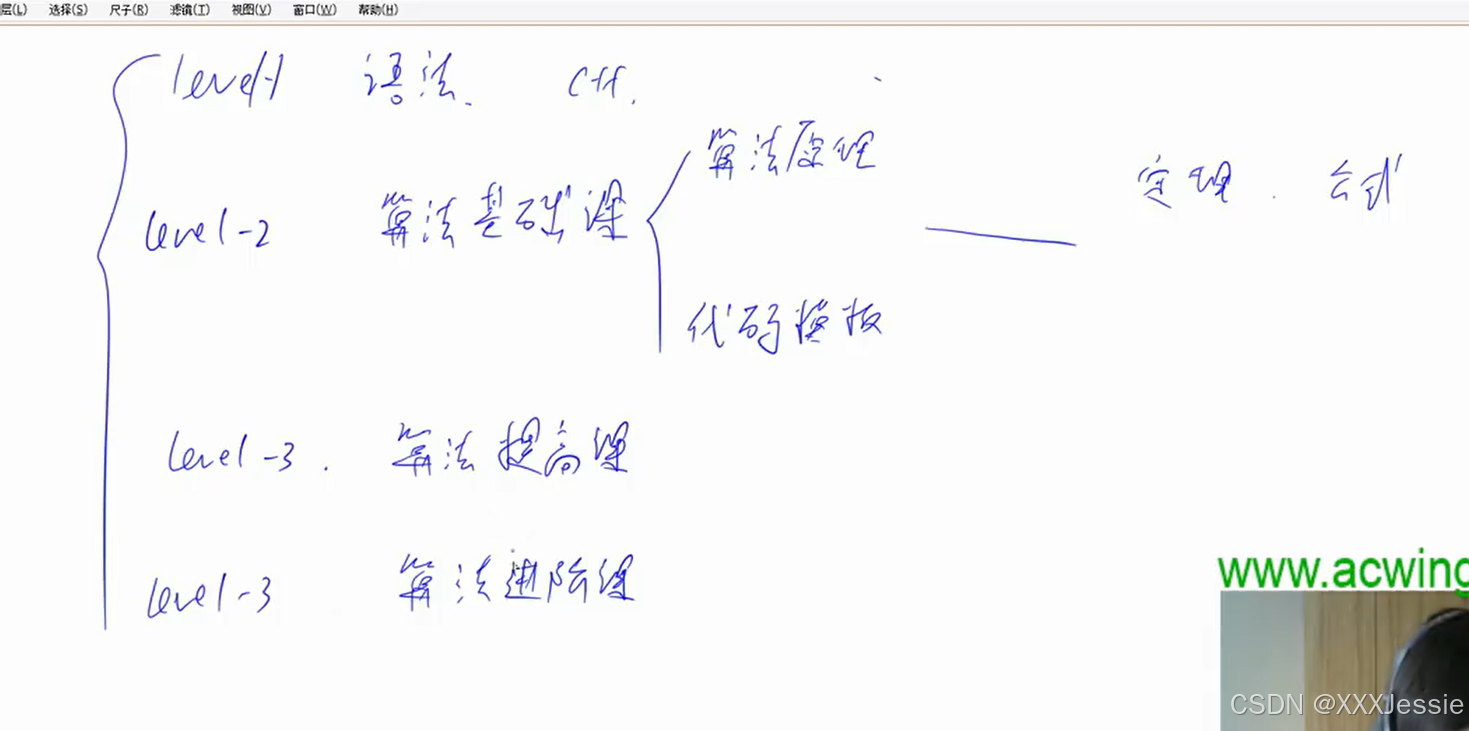 层(L) 选择(S) 尺子(R) 滤镜(T) 视图(V) 窗口(W) 帮助(H)
level-1 语法. C++.
算法原理
定理. 公式
level-2 算法基础课
代码模板
level-3. 算法提高课
level-3 算法进阶课
www.acwing
CSDN @XXXJessie